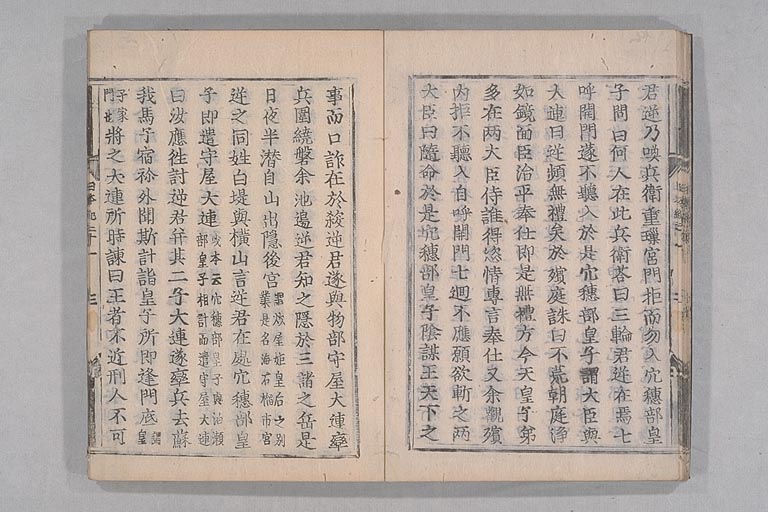 君逆乃喚兵衛重璅宮門拒而勿入穴穗部皇
子問曰何人在此兵衛答曰三輪君逆在焉七
呼開門遂不聽入於是穴穗部皇子謂大臣與
大連曰逆頻無禮矣於殯庭誄曰不荒朝庭淨
如鏡面臣治平奉仕即是無禮方今天皇子弟
多在兩大臣侍誰得恣情專言奉仕又余觀殯
內拒不聽入自呼開門七廻不應願欲斬之兩
大臣曰隨命於是穴穗部皇子陰謀王天下之
事而口詐在於殺逆君遂與物部守屋大連率
兵圍繞磐余池邊逆君知之隱於三諸之岳是
日夜半潛自山出隱後宮謂炊屋姬皇后之別業是名海石榴市宮
逆之同姓白堤與橫山言逆君在處穴穗部皇
子即遣守屋大連或本云穴穗部皇子與泊瀨部皇子相計而遣守屋大連
曰汝應徃討逆君并其二子大連遂率兵去蘇
我馬子宿祢外聞斯計詣皇子所即逢門底謂皇
子家門也將之大連所時諫曰王者不近刑人不可